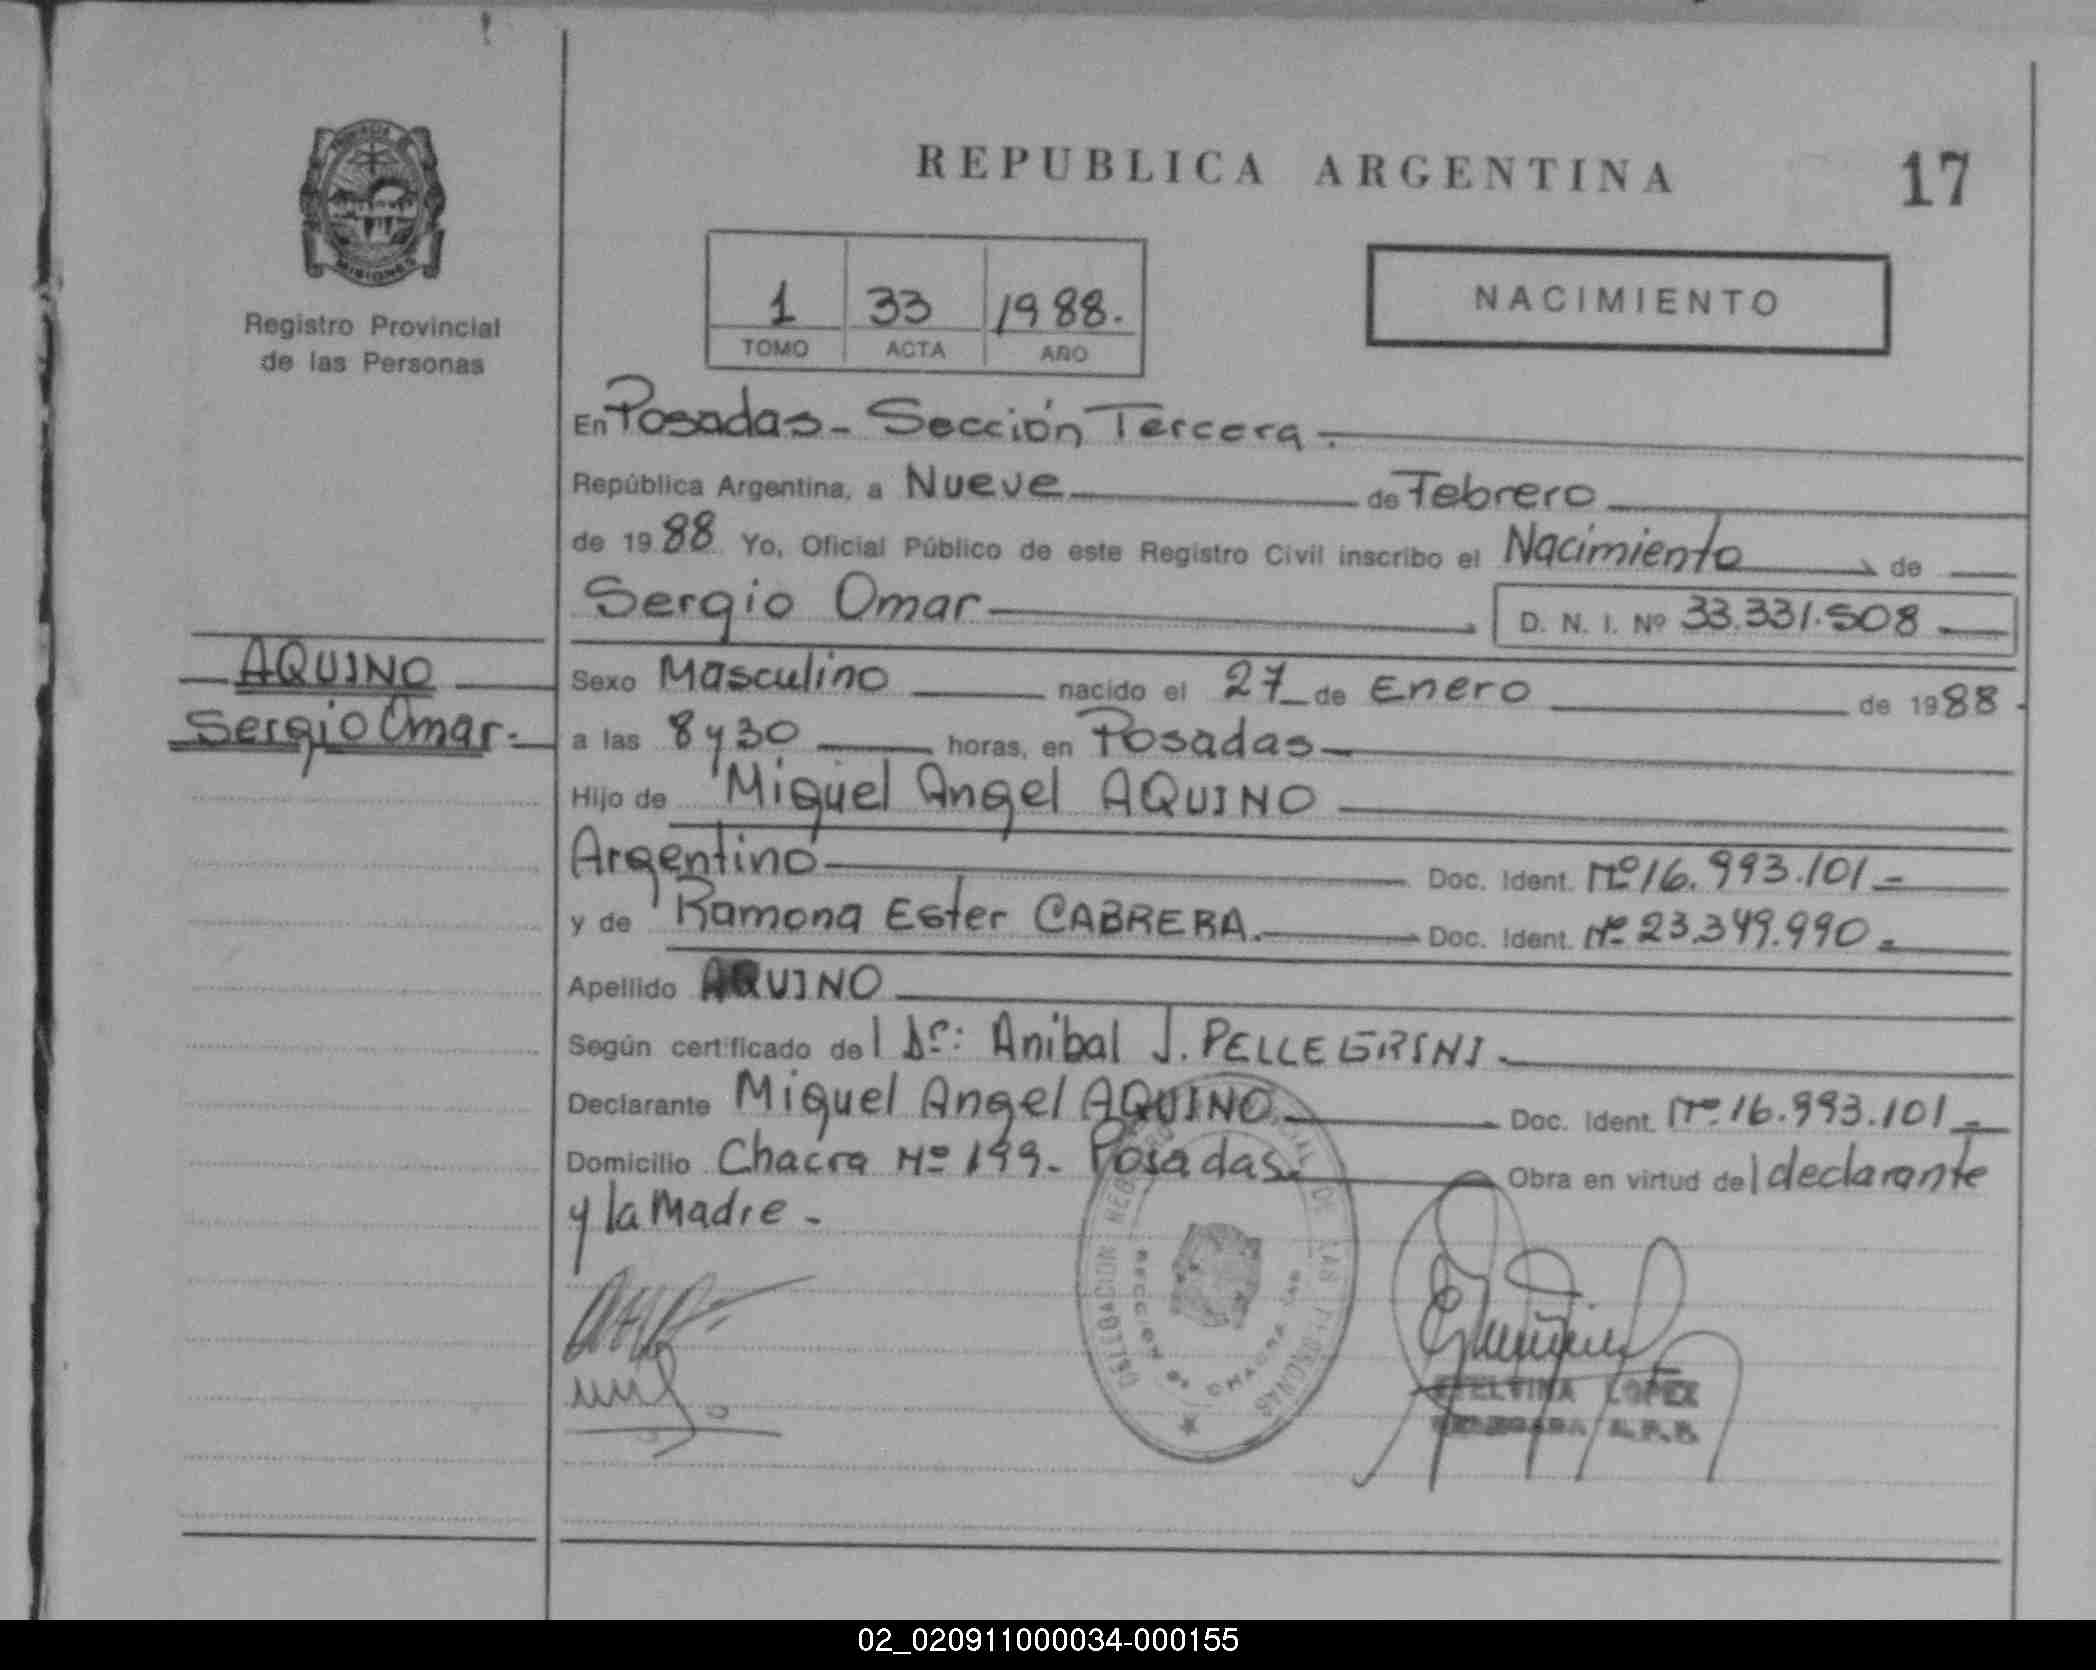 REPUBLICA ARGENTINA
17
Registro Provincial
de las Personas
1 33 1988.
TOMO ACTA AÑO
NACIMIENTO
En Posadas - Sección Tercera.
República Argentina, a Nueve de Febrero
de 1988 Yo, Oficial Público de este Registro Civil inscribo el Nacimiento de
Sergio Omar D. N. I. Nº 33.331.508
AQUINO
Sergio Omar.
Sexo Masculino nacido el 27 de Enero de 1988
a las 8 y 30 horas, en Posadas
Hijo de Miguel Angel AQUINO
Argentino Doc. Ident. Nº 16.993.101 -
y de Ramona Ester CABRERA. Doc. Ident. Nº 23.349.990 -
Apellido AQUINO
Según certificado del Dr: Anibal J. PELLEGRINI -
Declarante Miguel Angel AQUINO Doc. Ident. Nº 16.993.101 -
Domicilio Chacra Nº 199 - Posadas. Obra en virtud del declarante
y la Madre -
DELEGACION REGISTRO PROVINCIAL DE LAS PERSONAS
SECCION 3ª CHACRA
LOPEZ
02_020911000034-000155